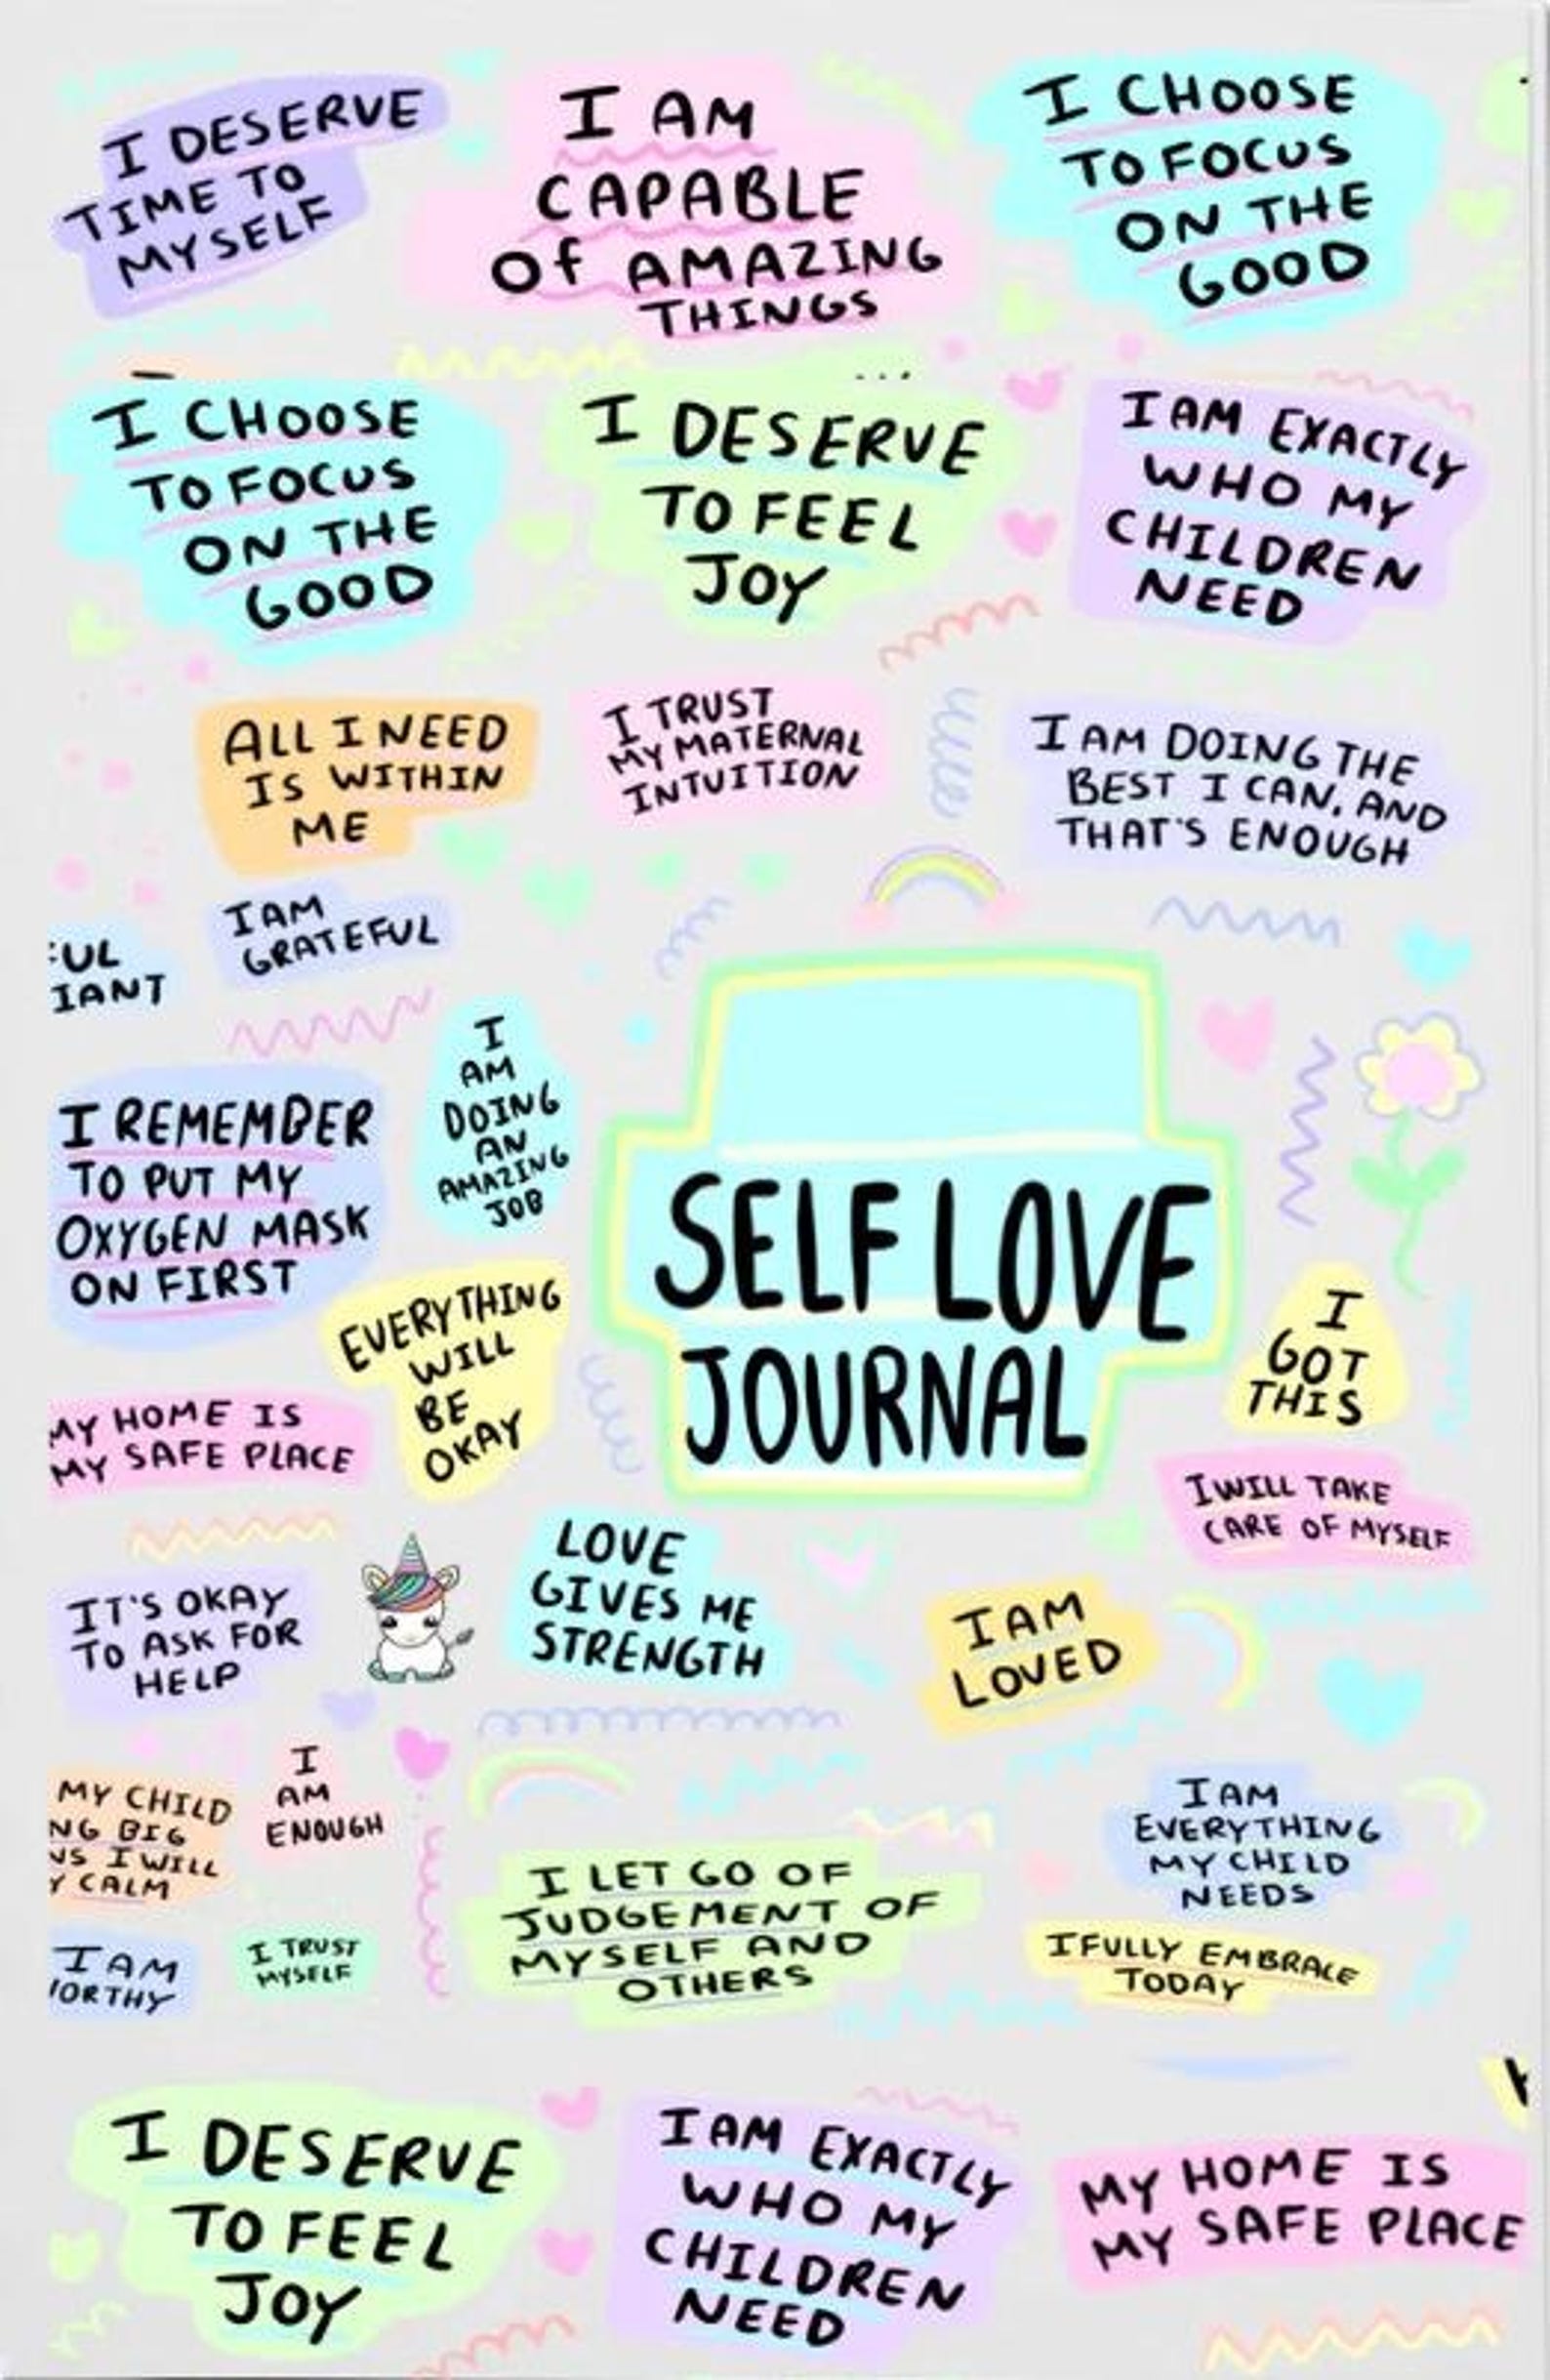 I DESERVE
TIME TO
MYSELF
I AM
CAPABLE
Of AMAZING
THINGS
I CHOOSE
TO FOCUS
ON THE
GOOD
I CHOOSE
TO FOCUS
ON THE
GOOD
I DESERVE
TO FEEL
JOY
I AM EXACTLY
WHO MY
CHILDREN
NEED
ALL I NEED
IS WITHIN
ME
I TRUST
MY MATERNAL
INTUITION
I AM DOING THE
BEST I CAN, AND
THAT'S ENOUGH
UL
IANT
I AM
GRATEFUL
I REMEMBER
TO PUT MY
OXYGEN MASK
ON FIRST
I
AM
DOING
AN
AMAZING
JOB
SELF LOVE
JOURNAL
EVERYTHING
WILL
BE
OKAY
I
GOT
THIS
MY HOME IS
MY SAFE PLACE
I WILL TAKE
CARE OF MYSELF
IT'S OKAY
TO ASK FOR
HELP
LOVE
GIVES ME
STRENGTH
I AM
LOVED
MY CHILD
NG BIG
NS I WILL
Y CALM
I
AM
ENOUGH
I LET GO OF
JUDGEMENT OF
MYSELF AND
OTHERS
I AM
EVERYTHING
MY CHILD
NEEDS
I AM
ORTHY
I TRUST
MYSELF
I FULLY EMBRACE
TODAY
I DESERVE
TO FEEL
JOY
I AM EXACTLY
WHO MY
CHILDREN
NEED
MY HOME IS
MY SAFE PLACE